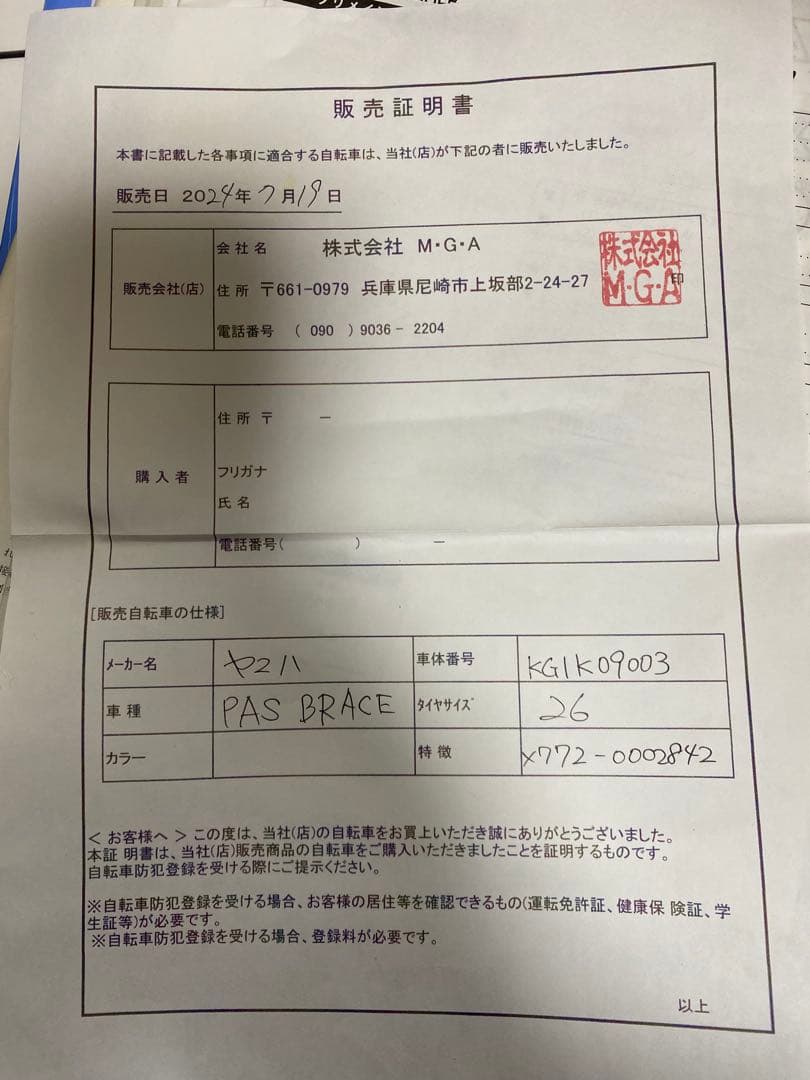 販売証明書
本書に記載した各事項に適合する自転車は、当社(店)が下記の者に販売いたしました。
販売日 2024年 7月19日
販売会社(店)
会社名 株式会社 M・G・A
住所 〒661-0979 兵庫県尼崎市上坂部2-24-27
電話番号 (090)9036-2204
株式会社
M・G・A
印
購入者
住所 〒 -
フリガナ
氏名
電話番号( ) -
[販売自転車の仕様]
メーカー名 ヤマハ 車体番号 KG1K09003
車種 PAS BRACE タイヤサイズ 26
カラー 特徴 X772-0002842
< お客様へ > この度は、当社(店)の自転車をお買上いただき誠にありがとうございました。
本証 明書は、当社(店)販売商品の自転車をご購入いただきましたことを証明するものです。
自転車防犯登録を受ける際にご提示ください。
※自転車防犯登録を受ける場合、お客様の居住等を確認できるもの(運転免許証、健康保 険証、学
生証等)が必要です。
※自転車防犯登録を受ける場合、登録料が必要です。
以上